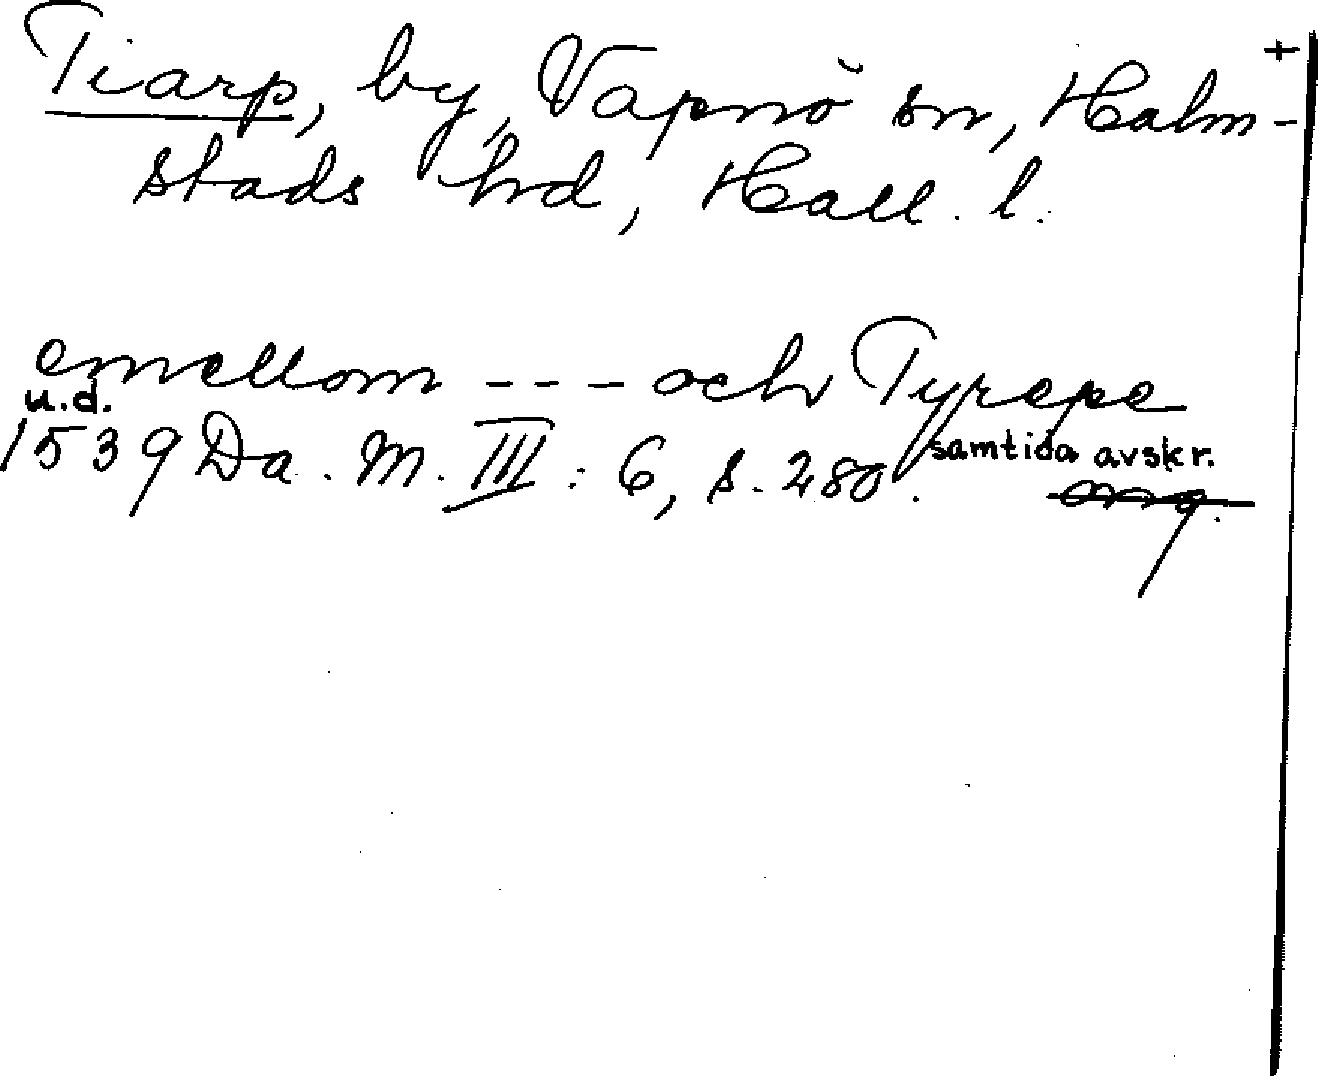 +
Tiarp, by, Vapnö sn, Halm-
stads hd, Hall. l.
emellom --- och Tyrepe
u.d.
1539 Da. M. III : 6, s. 280. samtida avskr.